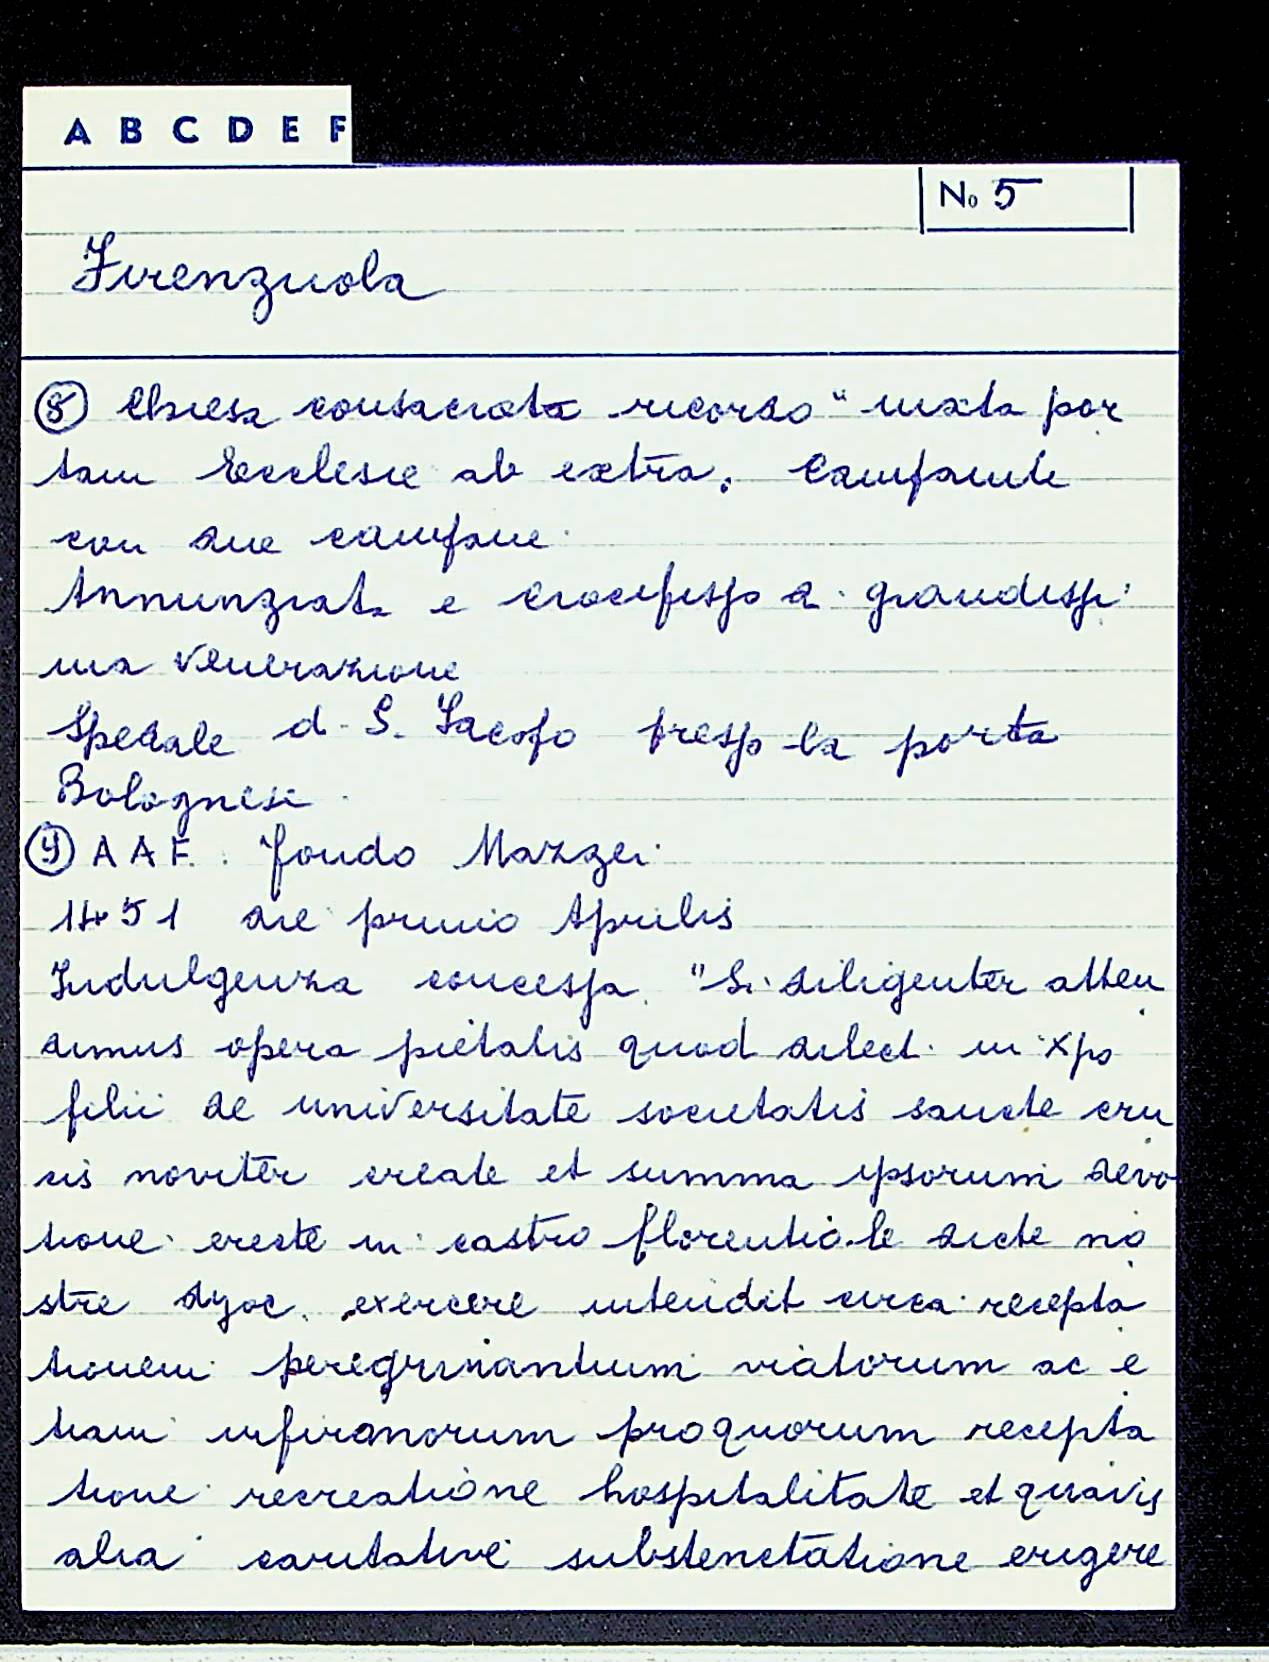 A B C D E F
No 5
Firenzuola
(8) Chiesa consacrata ricordo "iuxta por
tam Ecclesie ab extra. Campanile
con due campane.
Annunziata e Crocifisso a grandissi
ma venerazione
Spedale d. S. Iacopo presso la porta
Bolognese
(9) A A F. fondo Mazzei.
1451 die primio Aprilis
Indulgenza concessa. "Si diligenter atten
dimus opera pietatis quod dilect. in Xpo
filii de universitate societatis sancte cru
cis noviter create et summa ipsorum devo
tione erecte in castro florentiole dicte no
stre dyoc. exercere intendit circa recepta
tionem peregrinantium viatorum ac e
tiam infirmorum pro quorum recepta
tione recreatione hospitalitate et quavis
alia caritative substenctatione erigere